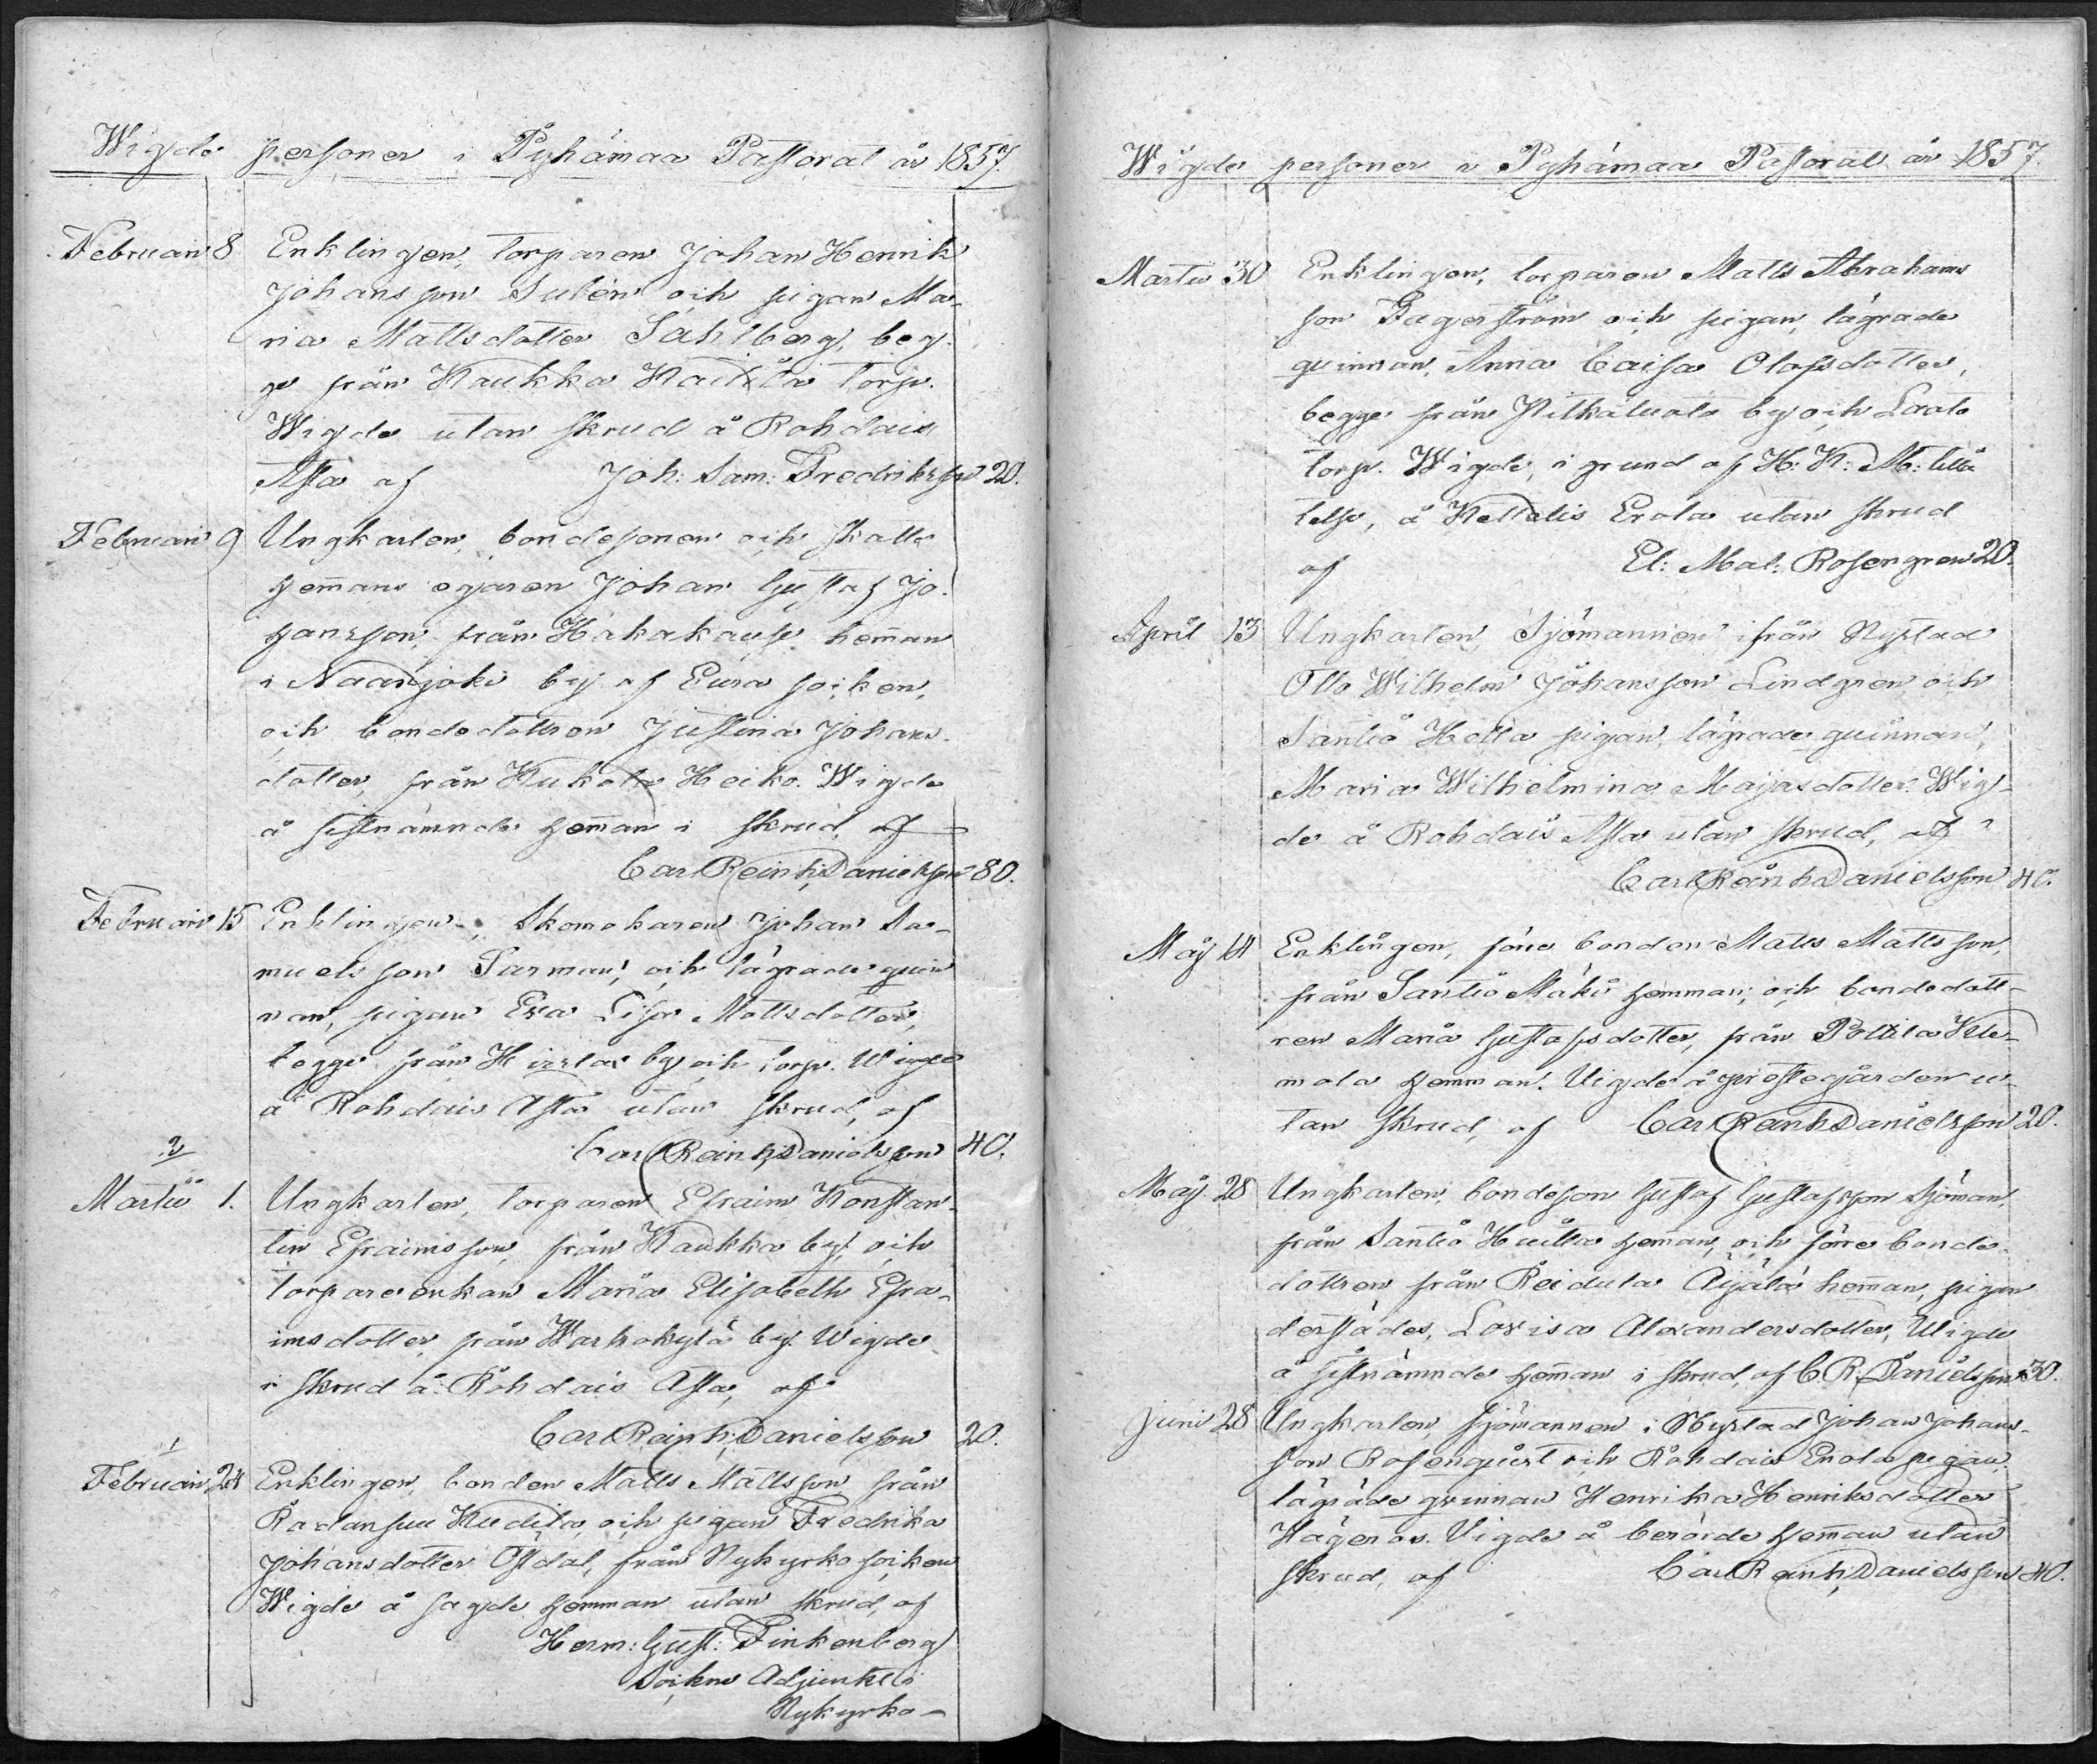 Wigde personer i Pyhämaa Pastorat år 1857.
Februarii 8 Enklingen, torparen Johan Henrik
Johansson Sulén och pigan Ma-
ria Mattsdotter Sahlberg, beg-
ge från Kaukka Kaitila torp.
Wigde utan skrud å Rohdais
Asta af Joh: Sam: Fredriksson 20.
Februarii 9 Ungkarlen, bondesonen och skatte
hemans egaren Johan Gustaf Jo-
hansson, från Hakakaus heman
i Naarjoki by af Eura socken,
och bondedottren Justina Johans-
dotter, från Kukola Heiko. Wigde
å sistnämnde heman i skrud af
Carl Reinh: Danielsson 80.
Februarii 15 Enklingen, Skomakaren Johan Sa-
muelsson Surman, och lägrade quin
nan, pigan Eva Lisa Mattsdotter,
begge från Hirslax by och torp. Wigde
å Rohdais Asta utan skrud, af
Carl Reinh: Danielsson 40.
2
Martii 1. Ungkarlen, torparen Efraim Konstan-
tin Efraimsson, från Kaukka by, och
torpareenkan Maria Elisabeth Efra-
imsdotter från Warhokylä by. Wigde
i skrud å Rohdais Asta, af
Carl Reinh: Danielsson 20.
1
Februarii 24 Enklingen, bonden Matts Mattsson från
Radansuu Kudila, och pigan Fredrika
Johansdotter Åsdal, från Nykyrko socken
Wigde å sagde hemman utan skrud, af
Herm: Gust: Finkenberg
Sockne Adjunkt i
Nykyrko-
Wigde personer i Pyhämaa Pastorat år 1857.
Martii 30 Enklingen, torparen Matts Abrahams
son Fagerström och pigan, lägrade
quinnan, Anna Caisa Olofsdotter,
begge från Pitkäluoto by och Laato
torp. Wigde, i grund af H: K: M: tillå
telse, å Kettelis Erola utan skrud
af El: Mal: Rosengren 20.
April 13 Ungkarlen, Sjömannen ifrån Nystad
Otto Wilhelm Johansson Lindgren och
Santio Holla pigan, lägrade quinnan,
Maria Wilhelmina Majasdotter. Wig-
de å Rohdais Asta utan skrud, af
Carl Reinh: Danielsson 40.
Maj 14 Enklingen, förre bonden Matts Mattsson,
från Santio Mäki hemman, och bondedott-
ren Maria Gustafsdotter, från Polttila Kle-
mola hemman. Wigde å prostegården u-
tan skrud, af Carl Reinh: Danielsson 20.
Maj 28 Ungkarlen, bondeson Gustaf Gustafsson Sjöman,
från Santio Huilla heman, och förre bonde-
dottren från Reidula Äijälä heman, pigan
derstädes, Lovisa Alexandersdotter, Wigde
å sistnämnde heman i skrud, af C. R. Danielsson 30.
Junii 28 Ungkarlen, Sjömannen i Nystad Johan Johans-
son Rosenquist och Rohdais Enola pigan,
lägrade quinnan Henrika Henriksdotter
Hägeros. Wigde å berörde heman utan
skrud, af Carl Reinh: Danielsson 40.